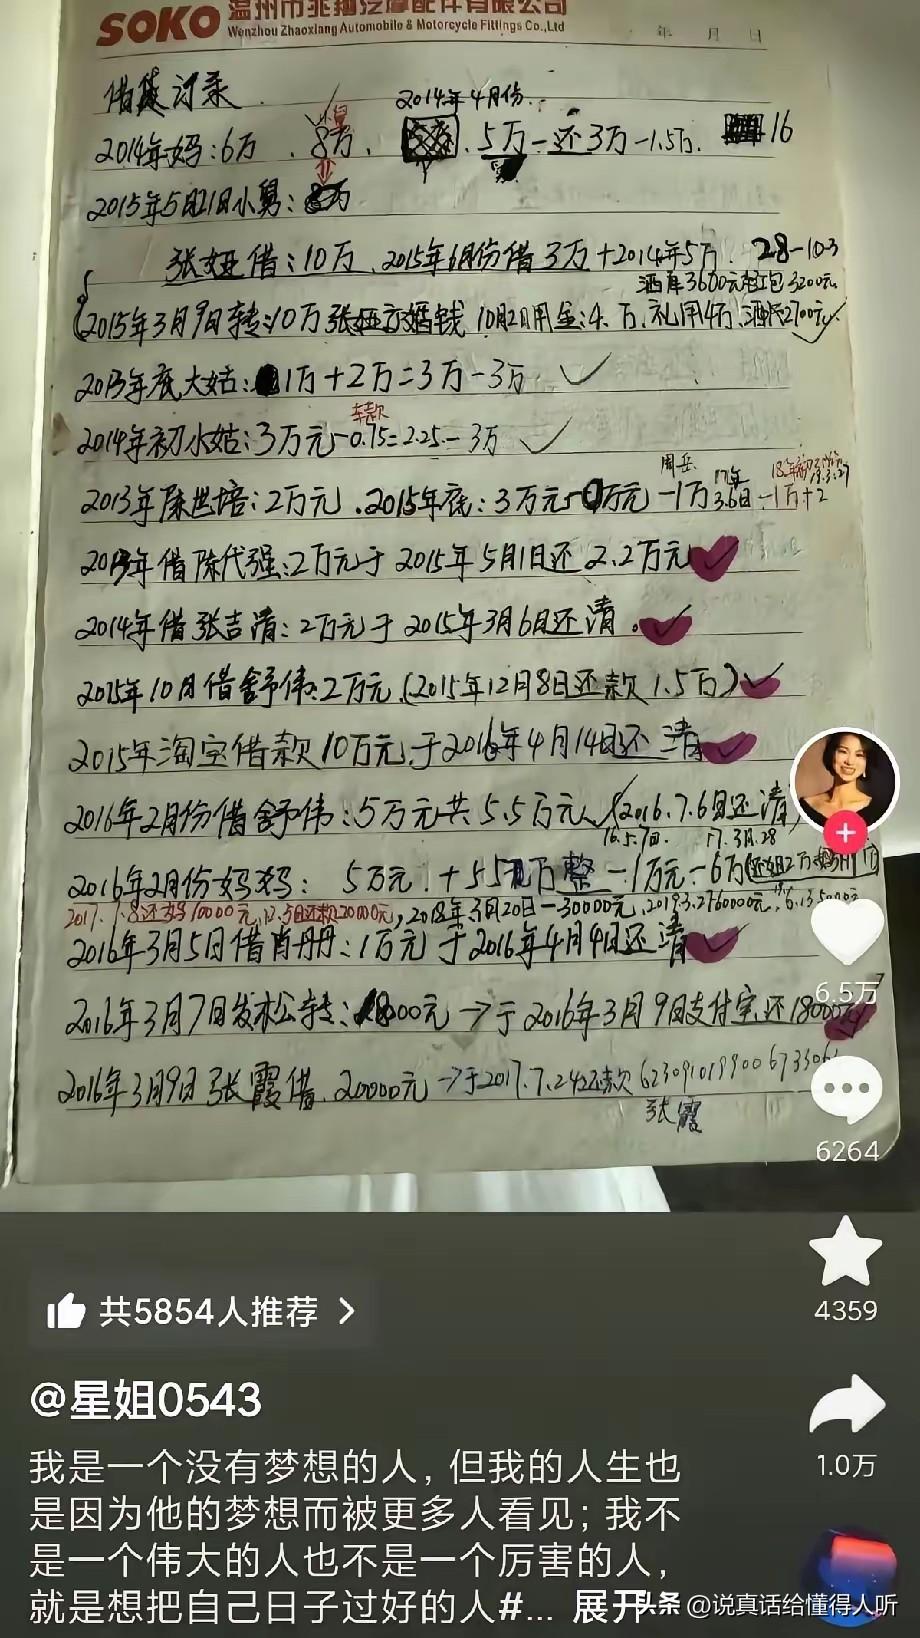 SOKO 温州市兆翔汽摩配件有限公司
Wenzhou Zhaoxiang Automobile & Motorcycle Fittings Co.,Ltd
年 月 日
借款记录
2014年4月份
小舅
2014年妈:6万 、8万、 、5万-还3万-1.5万. 16
2015年5月21日小舅:
张娅借:10万、2015年6月份借3万+2014年5万. 28-10-3
酒席3600元 红包3200元
2015年3月9日转:10万张娅 婚钱 10月2日用金:4.万、礼用4万、 2700元
2013年底大姑: 1万+2万=3万-3万
车款
2014年初小姑:3万元-0.75=2.25-3万
周岳
2013年陈世培:2万元、2015年底:3万元- 万元-1万 -1万+2
2013年借陈代强:2万元于2015年5月1日还2.2万元
2014年借张吉清:2万元于2015年3月6日还清。
2015年10月借舒伟:2万元(2015年12月8日还款1.5万)
2015年淘宝借款10万元于2016年4月14日还清
2016年2月份借舒伟:5万元共5.5万元(2016.7.6日还清)
17.3月.28
2016年2月份妈妈: 5万元.+ 万整-1万元-6万
2017.7.8还妈10000元,12.5日还款20000元,2018年3月20日-30000元、2019.3.2
2016年3月5日借肖丹丹:1万元于2016年4月4日还清
2016年3月7日 转: 00元→于2016年3月9日支付宝还18000元
2016年3月9日张霞借、20000元→于2017.7.24还款
张霞
6.5万
6264
共5854人推荐
4359
@星姐0543
1.0万
我是一个没有梦想的人，但我的人生也
是因为他的梦想而被更多人看见；我不
是一个伟大的人也不是一个厉害的人，
就是想把自己日子过好的人#... 展开
头条 @说真话给懂得人听